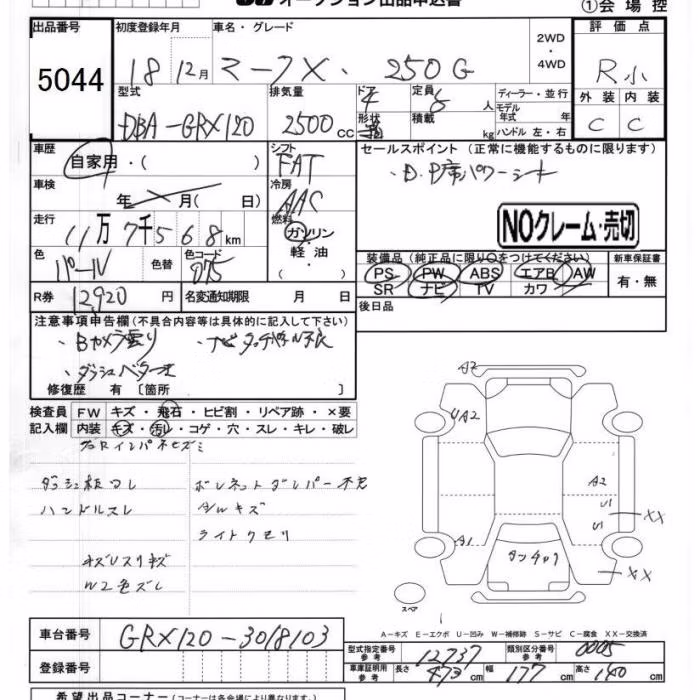 オークション出品申込書 ①会場控
出品番号 初度登録年月 車名・グレード 2WD・4WD 評価点
5044 18年12月 マークX・250G R小
型式 排気量 ドア 定員 ディーラー・並行 外装 内装
DBA-GRX120 2500cc 4 5人 モデル年式 年 C C
形状 積載 kg ハンドル 左・右
車歴 シフト セールスポイント(正常に機能するものに限ります)
自家用・( ) FAT ・D.P席パワーシート
車検 冷房
年 月( 日) AAC
走行 燃料 NOクレーム・売切
11万7千568km ガソリン・軽油・( )
色 色替 色コード 装備品(純正品に限り○をつけてください) 新車保証書
パール 075 PS PW ABS エアB AW 有・無
SR ナビ TV カワ
R券 12920円 名変通知期限 月 日 後日品
注意事項申告欄(不具合内容等は具体的に記入して下さい)
・Bカメラ曇り ・ナビタッチパネル不良
・ダッシュベタ
修復歴 有〔箇所 〕
検査員 FW キズ・飛石・ヒビ割・リペア跡・×要
記入欄 内装 キズ・汚レ・コゲ・穴・スレ・キレ・破レ
ダッシュ ボンネットダンパー不良
ハンドルスレ AWキズ
ライトクモリ
キズUスリキズ
W2色ズレ
A2
UA2
A2
U1
U1 XX
A1
XX
スペア
A-キズ E-エクボ U-凹み W-補修跡 S-サビ C-腐食 XX-交換済
車台番号 GRX120-3018103
型式指定参考番号 12737 類別区分番号参考 0005
登録番号 車庫証明用参考 長さ 473cm 幅 177cm 高さ 140cm
希望出品コーナー(コーナーは各会場により